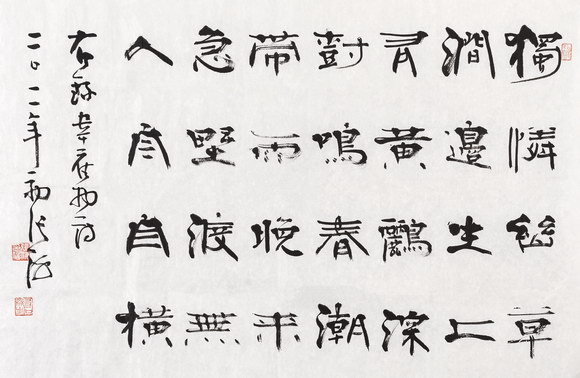 獨憐幽草
澗邊生上
有黃鸝深
樹鳴春潮
帶雨晚來
急野渡無
人舟自橫
右錄韋應物詩
二〇一一年初